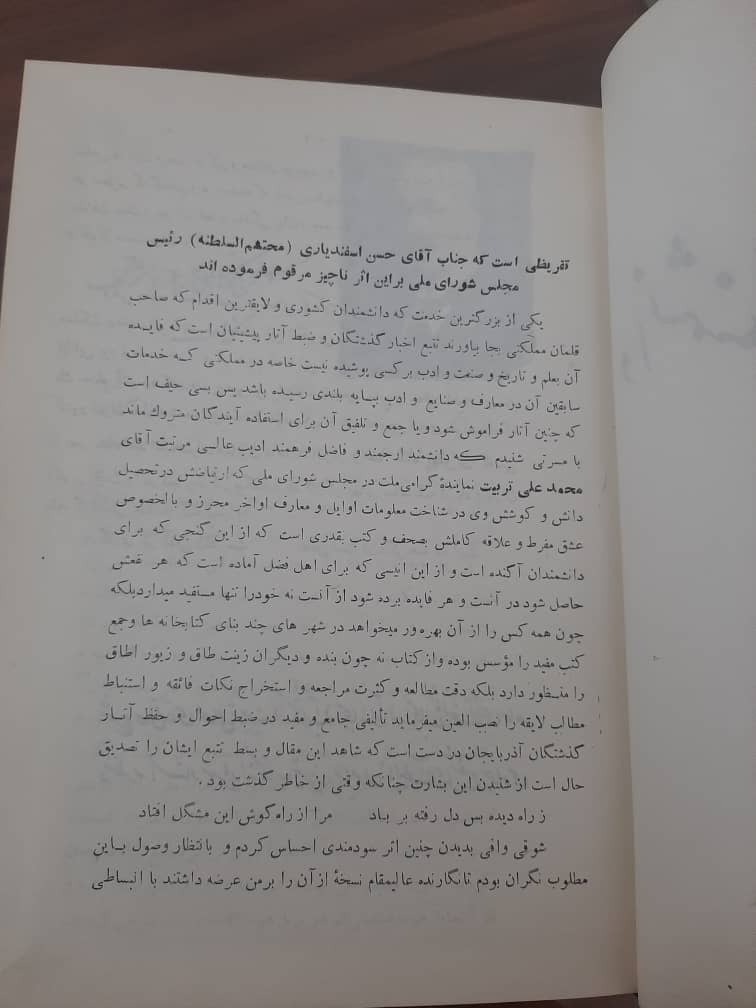 تقریظی است که جناب آقای حسن اسفندیاری (محتشم‌السلطنه) رئیس
مجلس شورای ملی براین اثر ناچیز مرقوم فرموده اند
یکی از بزرگترین خدمت که دانشمندان کشوری و لایقترین اقدام که صاحب
قلمان مملکتی بجا بیاورند تتبع اخبار گذشتگان و ضبط آثار پیشینیان است که فایده
آن بعلم و تاریخ و صنعت و ادب بر کسی پوشیده نیست خاصه در مملکتی که خدمات
سابقین آن در معارف و صنایع و ادب بپایه بلندی رسیده باشد پس بسی حیف است
که چنین آثار فراموش شود و یا جمع و تلفیق آن برای استفاده آیندگان متروك ماند
با مسرتی شنیدم که دانشمند ارجمند و فاضل فرهمند ادیب عالی مرتبت آقای
محمد علی تربیت نمایندهٔ گرامی ملت در مجلس شورای ملی که ارتیاضش در تحصیل
دانش و کوشش وی در شناخت معلومات اوایل و معارف اواخر محرز و بالخصوص
عشق مفرط و علاقه کاملش بصحف و کتب بقدری است که از این گنجی که برای
دانشمندان آکنده است و از این انیسی که برای اهل فضل آماده است که هر نفعش
حاصل شود در آنست و هر فایده برده شود از آنست نه خودرا تنها مستفید میدارد بلکه
چون همه کس را از آن بهره‌ور میخواهد در شهر های چند بنای کتابخانه ها و جمع
کتب مفید را مؤسس بوده و از کتاب نه چون بنده و دیگران زینت طاق و زیور اطاق
را منظور دارد بلکه دقت مطالعه و کثرت مراجعه و استخراج نکات فائقه و استنباط
مطالب لایقه را نصب العین میفرماید تألیفی جامع و مفید در ضبط احوال و حفظ آثار
گذشتگان آذربایجان در دست است که شاهد این مقال و بسط تتبع ایشان را تصدیق
حال است از شنیدن این بشارت چنانکه وقتی از خاطر گذشت بود .
ز راه دیده بس دل رفته بر باد مرا از راه گوش این مشگل افتاد
شوقی وافی بدیدن چنین اثر سودمندی احساس کردم و بانتظار وصول باین
مطلوب نگران بودم تا نگارنده عالیمقام نسخهٔ از آن را بر من عرضه داشتند با انبساطی